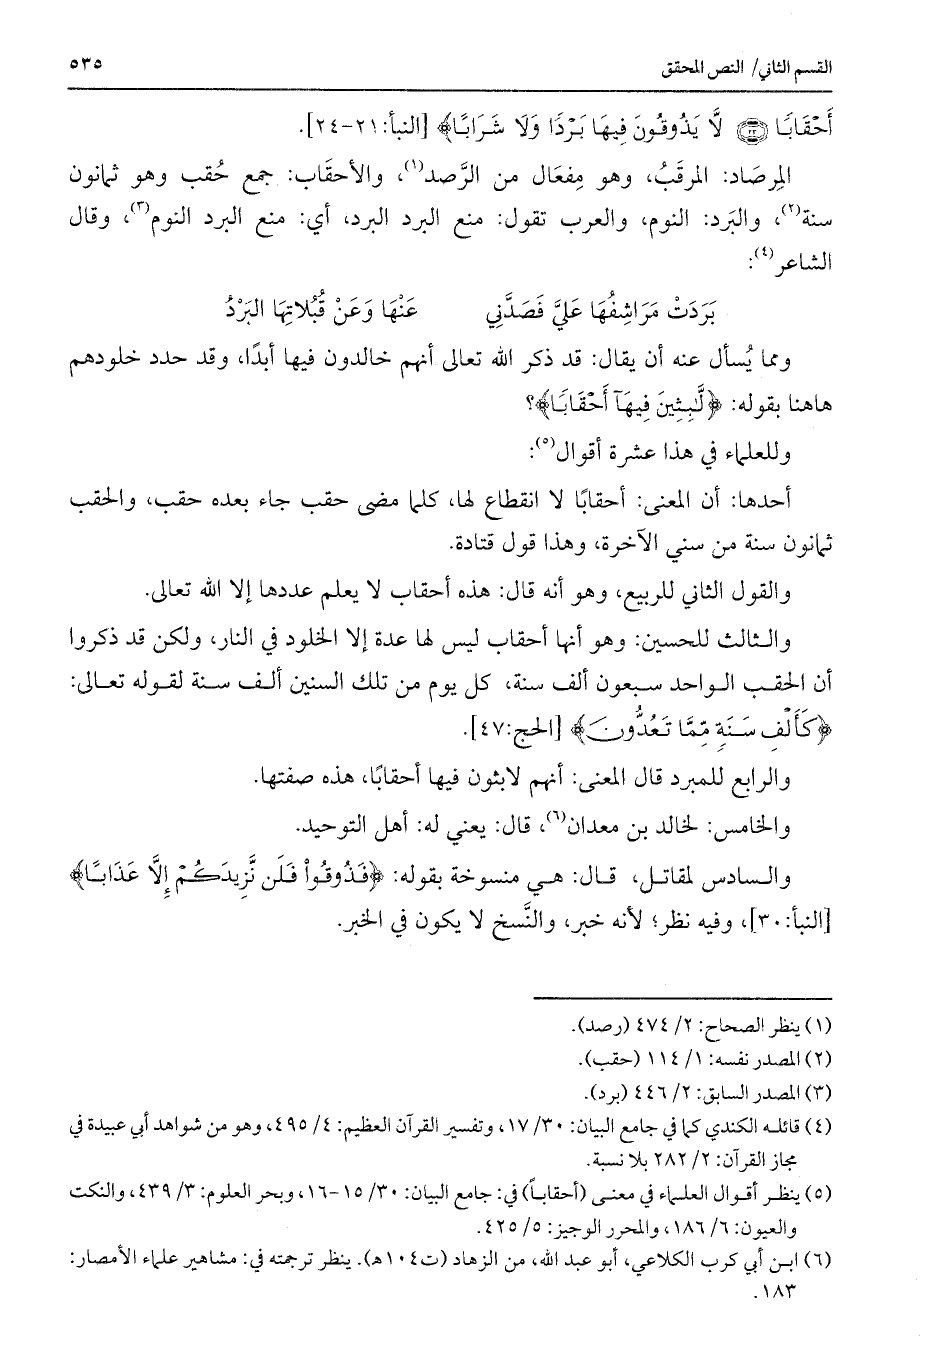 القسم الثاني/ النص المحقق ٥٣٥
أَحْقَابًا ﴿٢٣﴾ لَّا يَذُوقُونَ فِيهَا بَرْدًا وَلَا شَرَابًا﴾ [النبأ:٢١-٢٤].
المِرصَاد: المرقَبُ، وهو مِفعَال من الرَّصد(١)، والأحقَاب: جمع حُقب وهو ثمانون
سنة(٢)، والبَرد: النوم، والعرب تقول: منع البرد البرد، أي: منع البرد النوم(٣)، وقال
الشاعر(٤):
بَرَدَتْ مَرَاشِفُهَا عَلَيَّ فَصَدَّنِي عَنْهَا وَعَنْ قُبُلاتِهَا البَرْدُ
ومما يُسأل عنه أن يقال: قد ذكر الله تعالى أنهم خالدون فيها أبدًا، وقد حدد خلودهم
هاهنا بقوله: ﴿لَّٰبِثِينَ فِيهَآ أَحْقَابًا﴾؟
وللعلماء في هذا عشرة أقوال(٥):
أحدها: أن المعنى: أحقابًا لا انقطاع لها، كلما مضى حقب جاء بعده حقب، والحقب
ثمانون سنة من سني الآخرة، وهذا قول قتادة.
والقول الثاني للربيع، وهو أنه قال: هذه أحقاب لا يعلم عددها إلا الله تعالى.
والثالث للحسين: وهو أنها أحقاب ليس لها عدة إلا الخلود في النار، ولكن قد ذكروا
أن الحقب الواحد سبعون ألف سنة، كل يوم من تلك السنين ألف سنة لقوله تعالى:
﴿كَأَلْفِ سَنَةٍ مِّمَّا تَعُدُّونَ﴾ [الحج:٤٧].
والرابع للمبرد قال المعنى: أنهم لابثون فيها أحقابًا، هذه صفتها.
والخامس: لخالد بن معدان(٦)، قال: يعني له: أهل التوحيد.
والسادس لمقاتل، قال: هي منسوخة بقوله: ﴿فَذُوقُواْ فَلَن نَّزِيدَكُمْ إِلَّا عَذَابًا﴾
[النبأ:٣٠]، وفيه نظر؛ لأنه خبر، والنَّسخ لا يكون في الخبر.
(١) ينظر الصحاح: ٢/ ٤٧٤ (رصد).
(٢) المصدر نفسه: ١/ ١١٤ (حقب).
(٣) المصدر السابق: ٢/ ٤٤٦ (برد).
(٤) قائله الكندي كما في جامع البيان: ٣٠/ ١٧، وتفسير القرآن العظيم: ٤/ ٤٩٥، وهو من شواهد أبي عبيدة في
مجاز القرآن: ٢/ ٢٨٢ بلا نسبة.
(٥) ينظر أقوال العلماء في معنى (أحقاباً) في: جامع البيان: ٣٠/ ١٥-١٦، وبحر العلوم: ٣/ ٤٣٩، والنكت
والعيون: ٦/ ١٨٦، والمحرر الوجيز: ٥/ ٤٢٥.
(٦) ابن أبي كرب الكلاعي، أبو عبد الله، من الزهاد (ت١٠٤هـ). ينظر ترجمته في: مشاهير علماء الأمصار:
١٨٣.